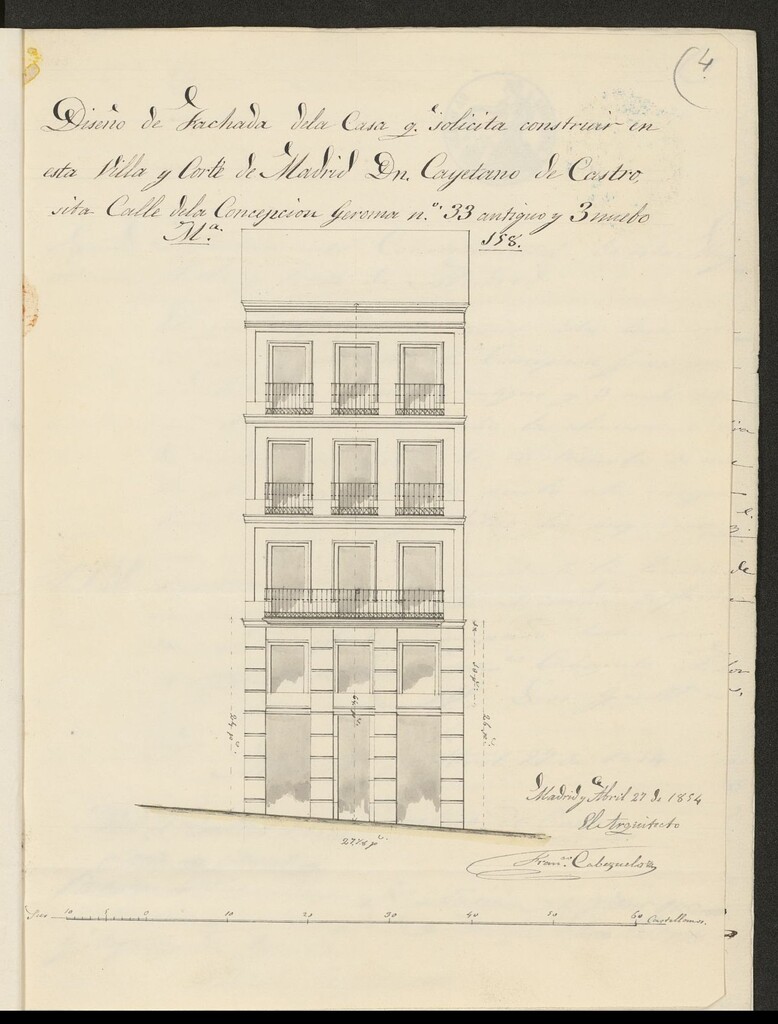 4
Diseño de Fachada dela Casa q.e solicita construir en
esta Villa y Corte de Madrid Dn. Cayetano de Castro,
sita Calle dela Concepcion Geroma n.o 33 antiguo y 3 nuebo
M.a 158.
24 p.s
26 p.s
Madrid y Abril 27 de 1854
El Arquitecto
Fran.co Cabezuelo
10 5 0 10 20 30 40 50 60 Castellanos.